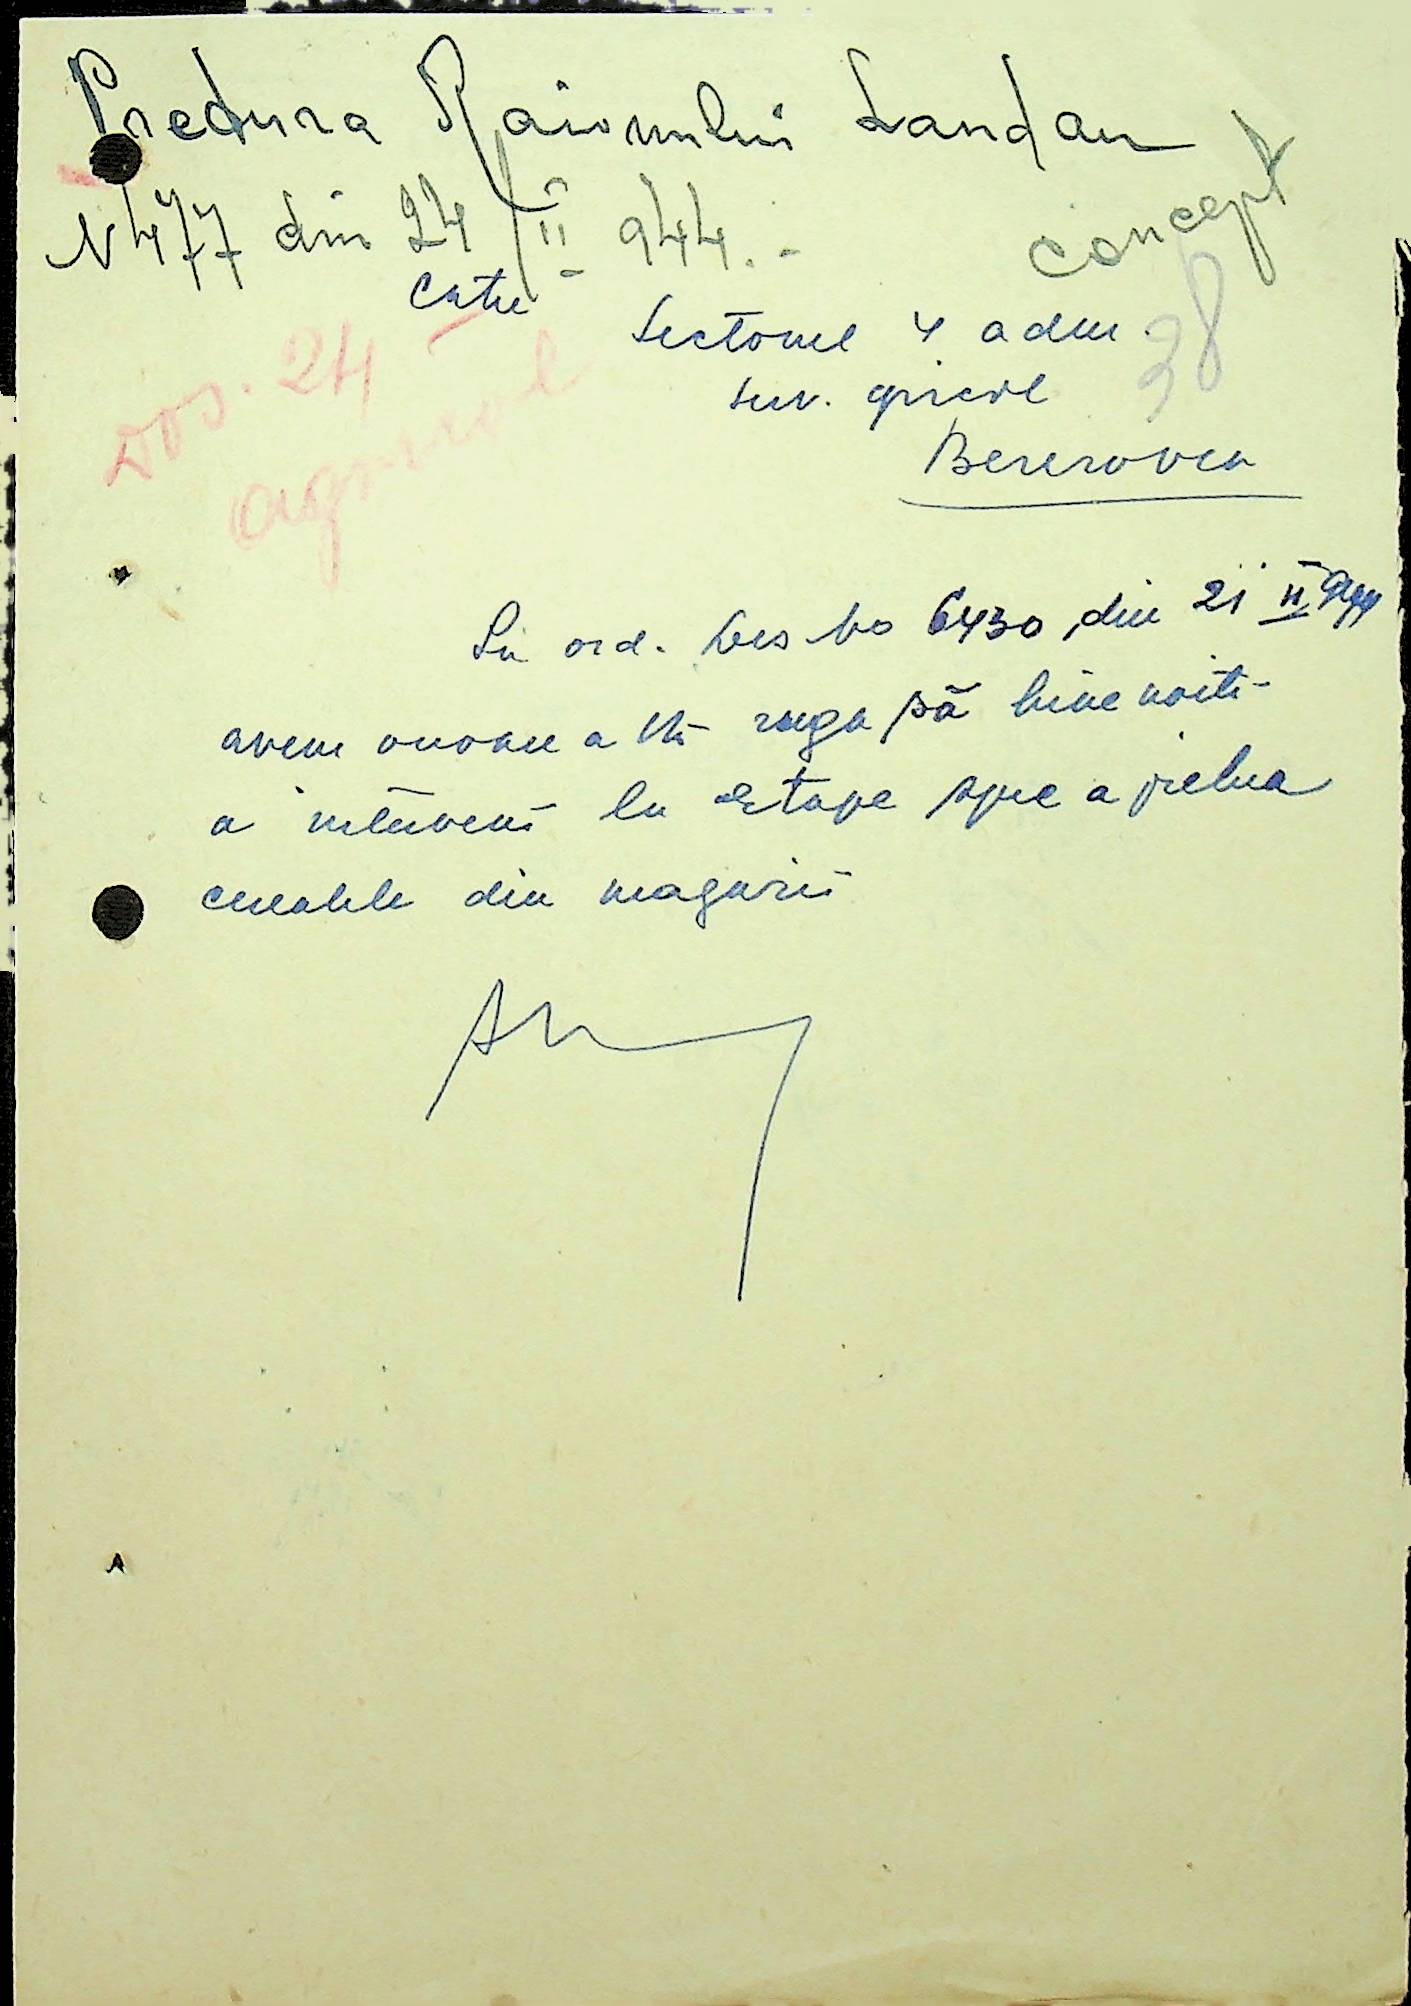 Pretura Raionului Landau
N 477 din 24/II 944.-
concept
Catre
38
Sectorul 4 adm
serv. agricol
Berezovca
Dos. 24
agricol
La ord. Dvs No 6430 din 21 II 944
avem onoare a Vă ruga să bine voiti-
a interveni la Etape spre a prelua
cerealele din magazii